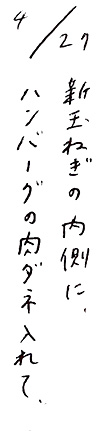 4/27
新玉ねぎの内側に、
ハンバーグの肉ダネ入れて、